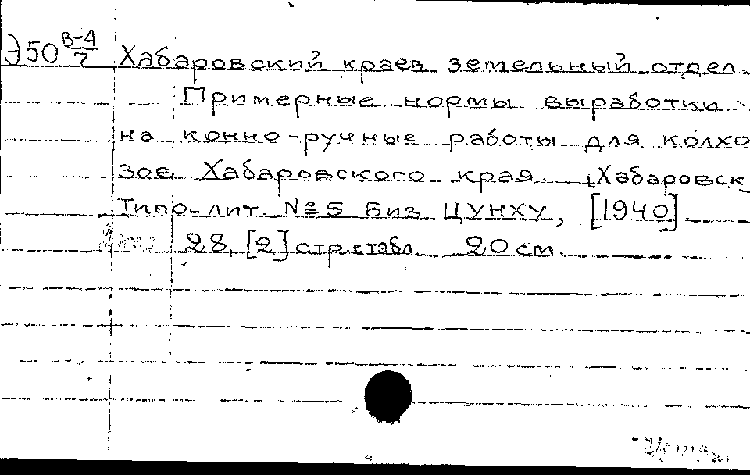 Э50 В-4/7 Хабаровский краев земельный отдел.
Примерные нормы выработки
на конно-ручные работы для колхо
зов Хабаровского края [Хабаровск
Типо-лит. №5 Биз ЦУНХУ, [1940]
28, [2] стр. с табл. 20 см.